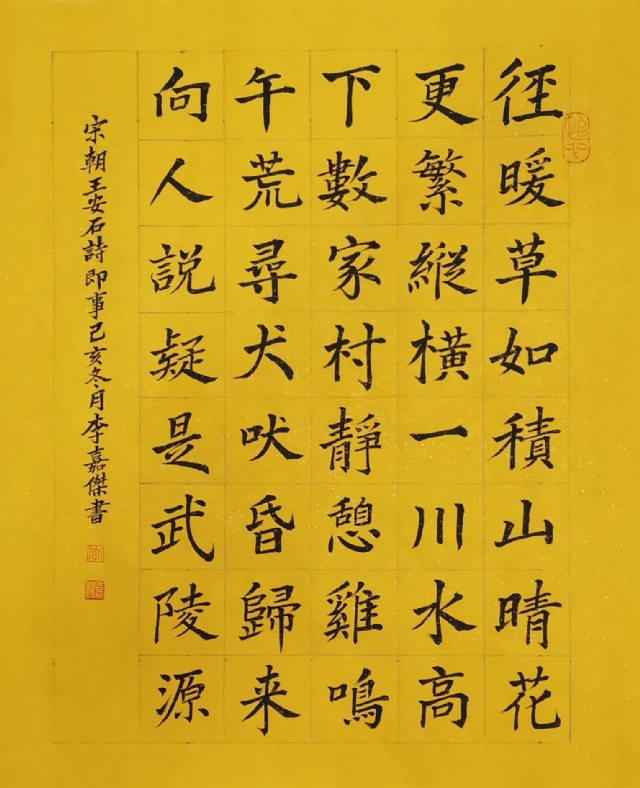 徑暖草如積山晴花
更繁縱橫一川水高
下數家村靜憩雞鳴
午荒尋犬吠昏歸来
向人説疑是武陵源
宋朝王安石詩即事己亥冬月李嘉傑書